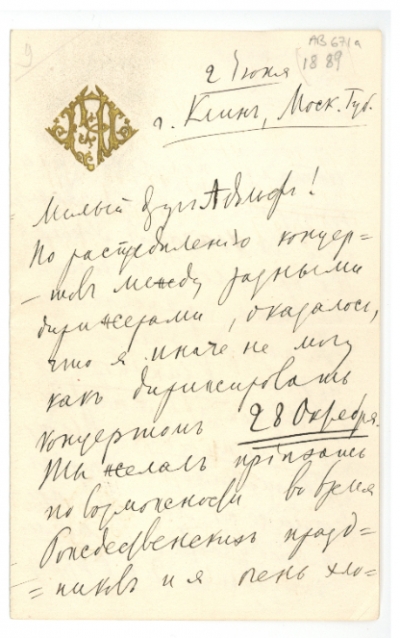 9
АВ 671а
(1889)
2 Июня
г. Клинъ, Моск. Губ.
Милый другъ Адольфъ!
По распредѣленію концер=
=товъ между разными
дирижерами, оказалось,
что я иначе не могу
какъ дирижировать
концертомъ 28 Октября.
Ты желалъ пріѣхать
по возможности во время
Рождественскихъ празд=
=никовъ и я очень хло=